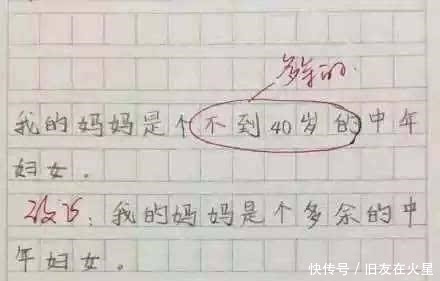 多余的
我的妈妈是个不到40岁的中年
妇女。
改正：我的妈妈是个多余的中
年妇女。
快传号 / 旧友在火星